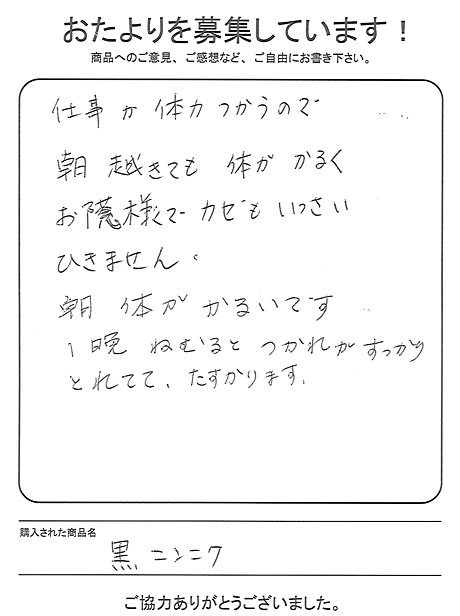 おたよりを募集しています！
商品へのご意見、ご感想など、ご自由にお書き下さい。
仕事が体力つかうので
朝 越きても 体が かるく
お隠様でカゼもいっさい
ひきません。
朝 体が かるいです
1晩 ねむると つかれがすっかり
とれてて、たすかります。
購入された商品名
黒ニンニク
ご協力ありがとうございました。